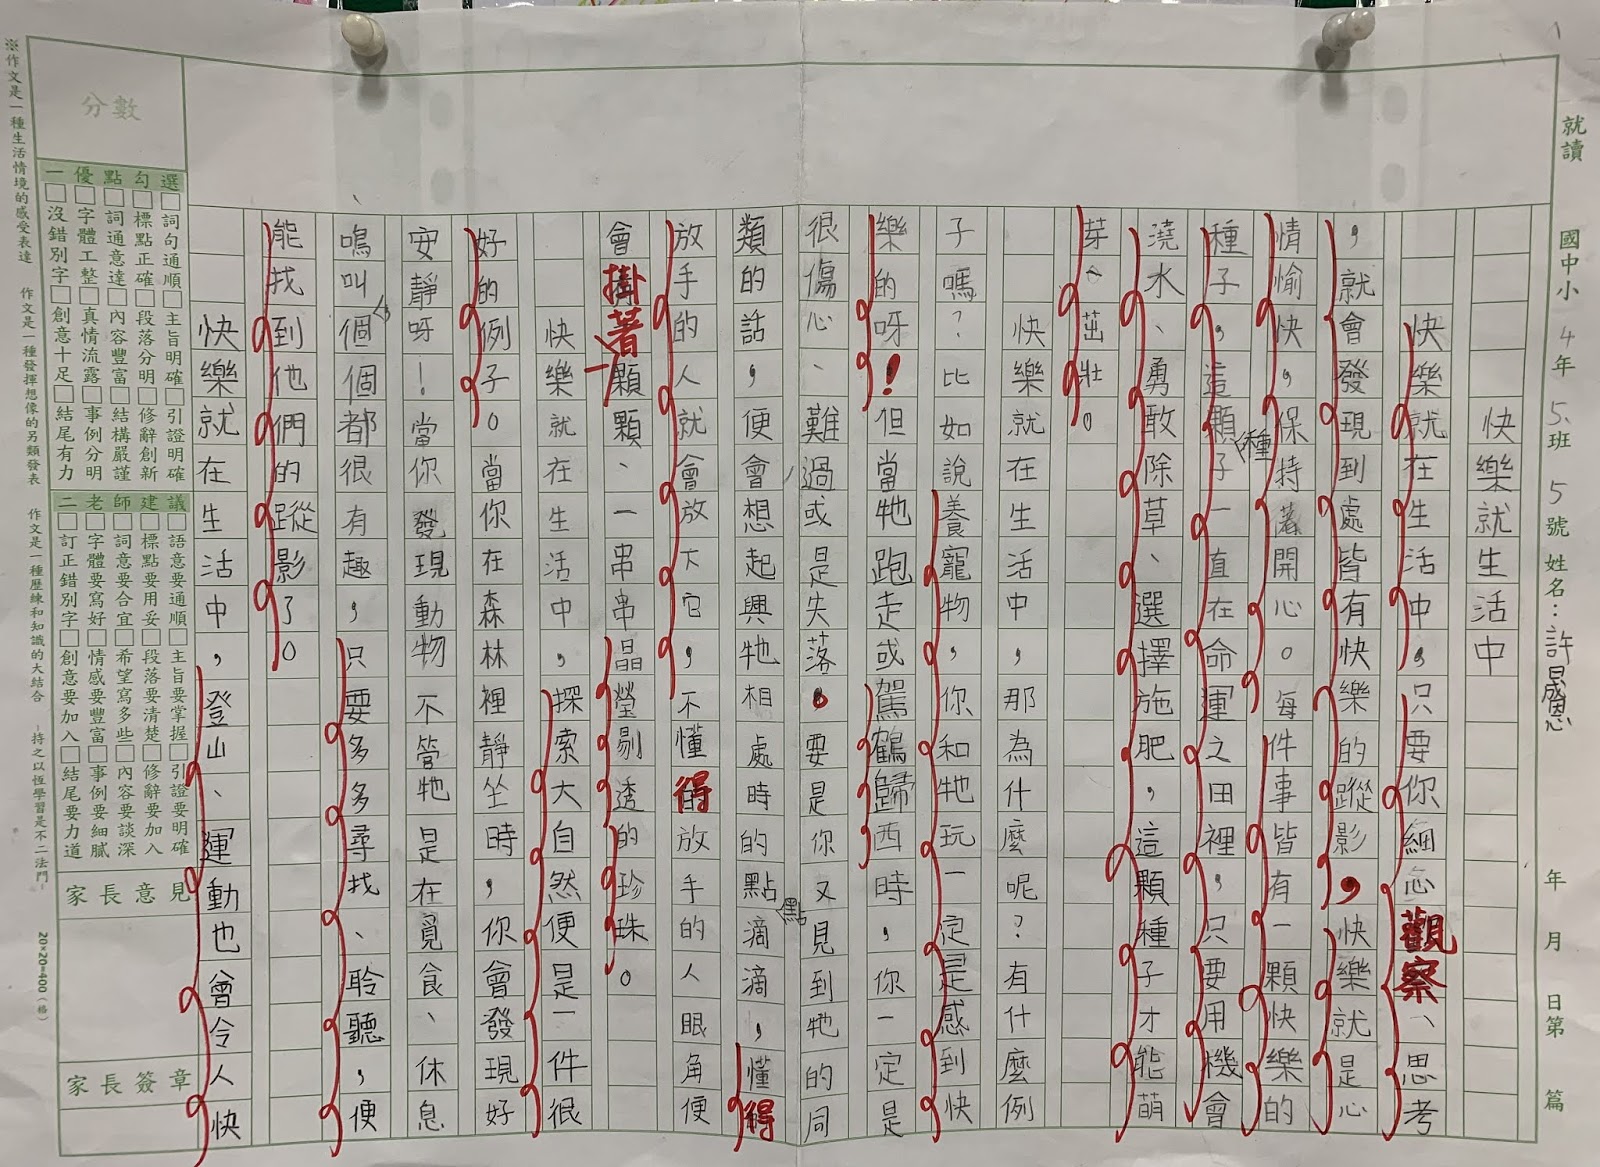 就讀 國中小 4年 5班 5號 姓名：許晟恩 年 月 日第 篇
快樂就生活中
快樂就在生活中，只要你細心觀察、思考
，就會發現到處皆有快樂的蹤影，快樂就是心
情愉快，保持著開心。每件事皆有一顆快樂的
種子，這顆種子一直在命運之田裡，只要用機會
澆水、勇敢除草、選擇施肥，這顆種子才能萌
芽、茁壯。
快樂就在生活中，那為什麼呢？有什麼例
子嗎？比如說養寵物，你和牠玩一定是感到快
樂的呀！但當牠跑走或駕鶴歸西時，你一定是
很傷心、難過或是失落，要是你又見到牠的同
類的話，便會想起與牠相處時的點點滴滴，懂得
放手的人就會放大它，不懂得放手的人眼角便
會掛著一顆顆、一串串晶瑩剔透的珍珠。
快樂就在生活中，探索大自然便是一件很
好的例子。當你在森林裡靜坐時，你會發現好
安靜呀！當你發現動物不管牠是在覓食、休息
鳴叫個個都很有趣，只要多多尋找、聆聽，便
能找到他們的蹤影了。
快樂就在生活中，登山、運動也會令人快
分數
一優點勾選
□詞句通順□主旨明確□引證明確
□標點正確□段落分明□修辭創新
□詞通意達□內容豐富□結構嚴謹
□字體工整□真情流露□事例分明
□沒錯別字□創意十足□結尾有力
二老師建議
□語意要通順□主旨要掌握□引證要明確
□標點要用妥□段落要清楚□修辭要加入
□詞意要合宜□希望寫多些□內容要談深
□字體要寫好□情感要豐富□事例要細膩
□訂正錯別字□創意要加入□結尾要力道
家長意見
家長簽章
※作文是一種生活情境的感受表達 作文是一種發揮想像的另類發表 作文是一種歷練和知識的大結合 －持之以恆學習是不二法門－ 20×20=400（格）